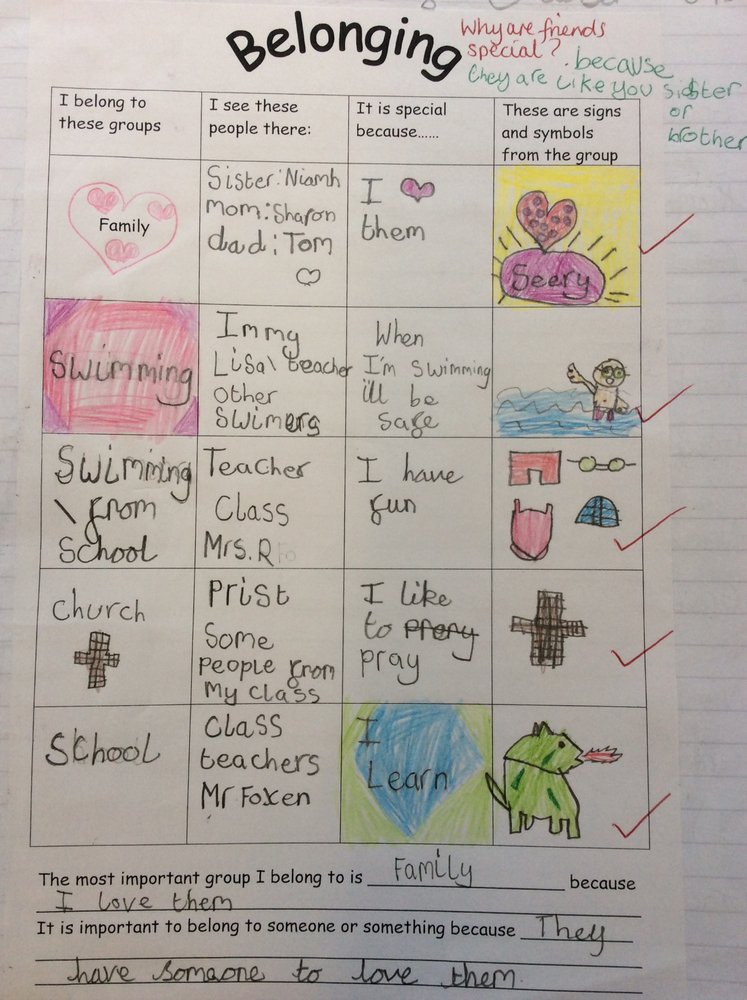 Belonging
Why are friends
special?
because
they are like you sisster
or
brother
I belong to
these groups
I see these
people there:
It is special
because......
These are signs
and symbols
from the group
Family
Sister: Niamh
mom: Sharon
dad: Tom
I
them
Seery
Swimming
Immy
Lisa\ teacher
other
Swimers
When
I'm swimming
ill be
safe
Swimming
\ from
School
Teacher
Class
Mrs. R
I have
fun
Church
Prist
Some
people from
my class
I like
to
pray
School
Class
teachers
Mr Foxen
I
Learn
The most important group I belong to is Family because
I love them
It is important to belong to someone or something because They
have someone to love them.